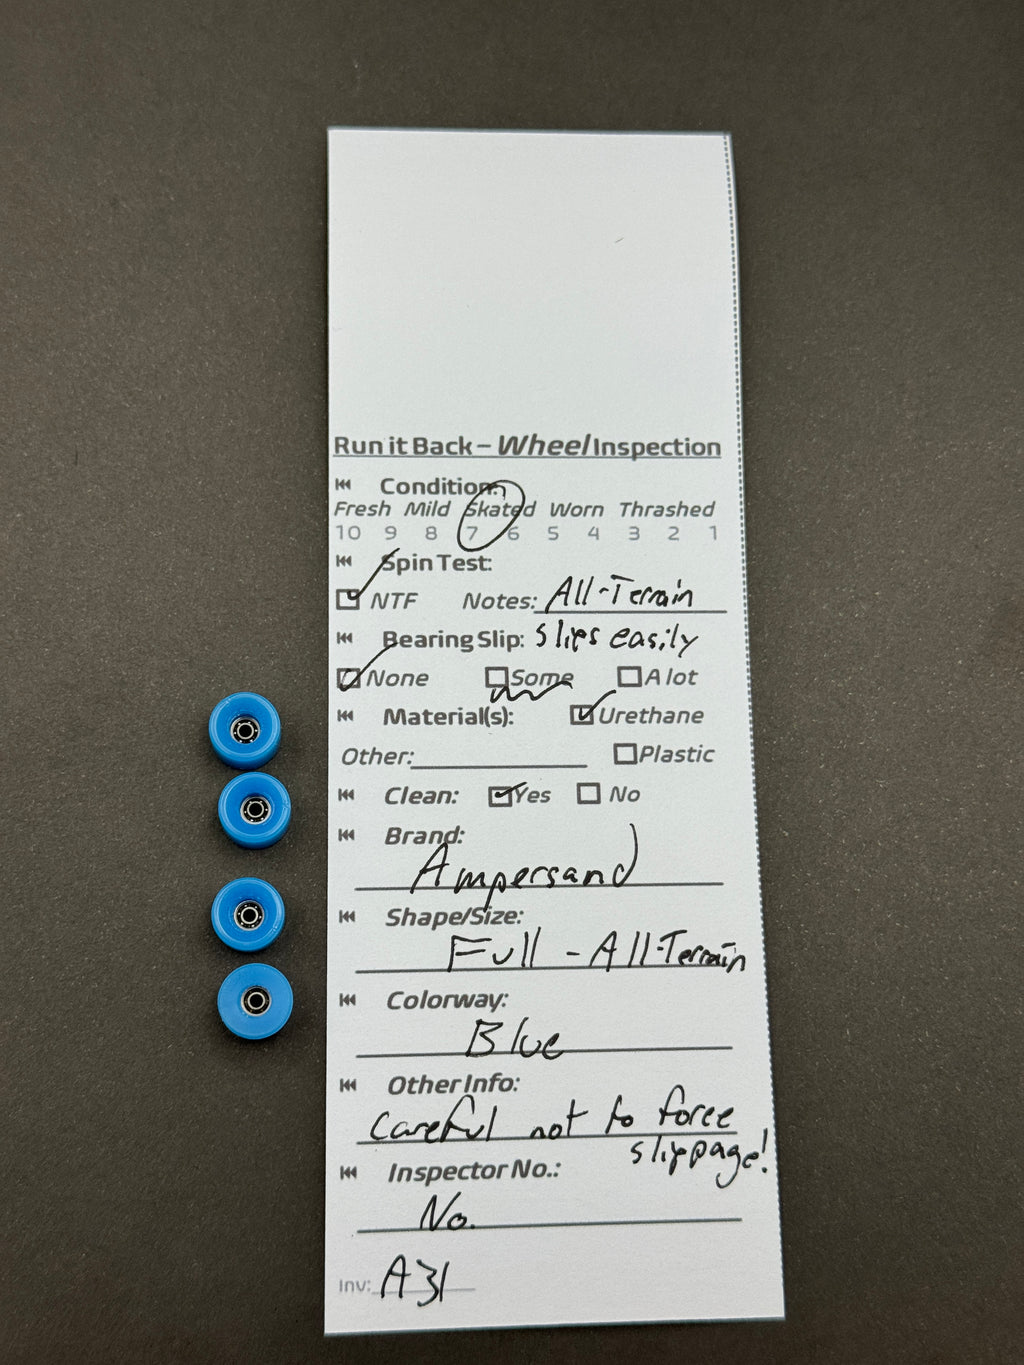 Run it Back – Wheel Inspection
Condition:
Fresh Mild Skated Worn Thrashed
10 9 8 7 6 5 4 3 2 1
Spin Test:
NTF Notes: All-Terrain
Bearing Slip: Slips easily
None Some A lot
Material(s): Urethane
Other: Plastic
Clean: Yes No
Brand:
Ampersand
Shape/Size:
Full - All-Terrain
Colorway:
Blue
Other Info:
Careful not to force
slippage!
Inspector No.:
No.
Inv: A31